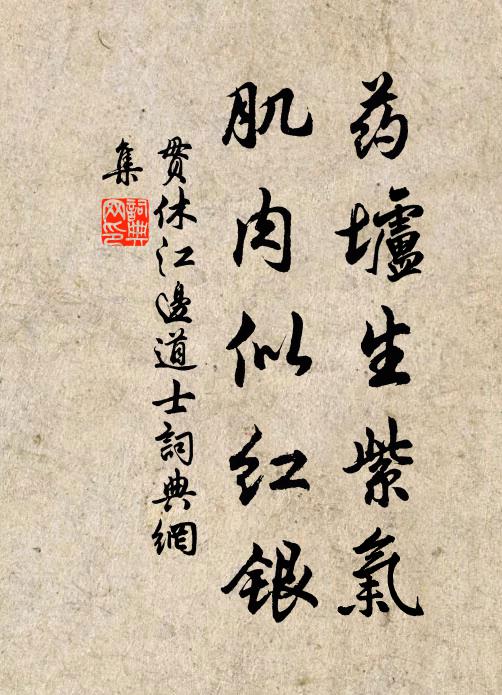 药壚生紫氣
肌肉似红銀
贯休江邊道士詞典網
集
詞典
网印